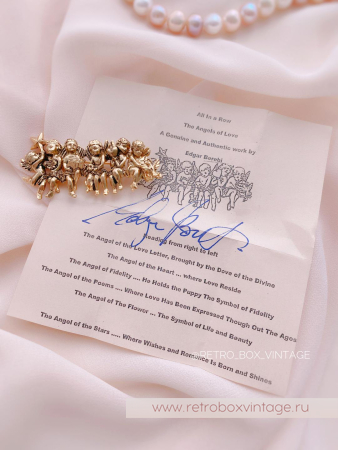 All In a Row
The Angels of Love
A Genuine and Authentic work by
Edgar Berebi
Reading from right to left
The Angel of the Love Letter, Brought by the Dove of the Divine
The Angel of the Heart ... where Love Reside
The Angel of Fidelity .... He Holds the Puppy The Symbol of Fidelity
The Angel of the Poems .... Where Love Has Been Expressed Though Out The Ages
The Angel of The Flower ... The Symbol of Life and Beauty
The Angel of the Stars .... Where Wishes and Romance Is Born and Shines
RETRO_BOX_VINTAGE
www.retroboxvintage.ru